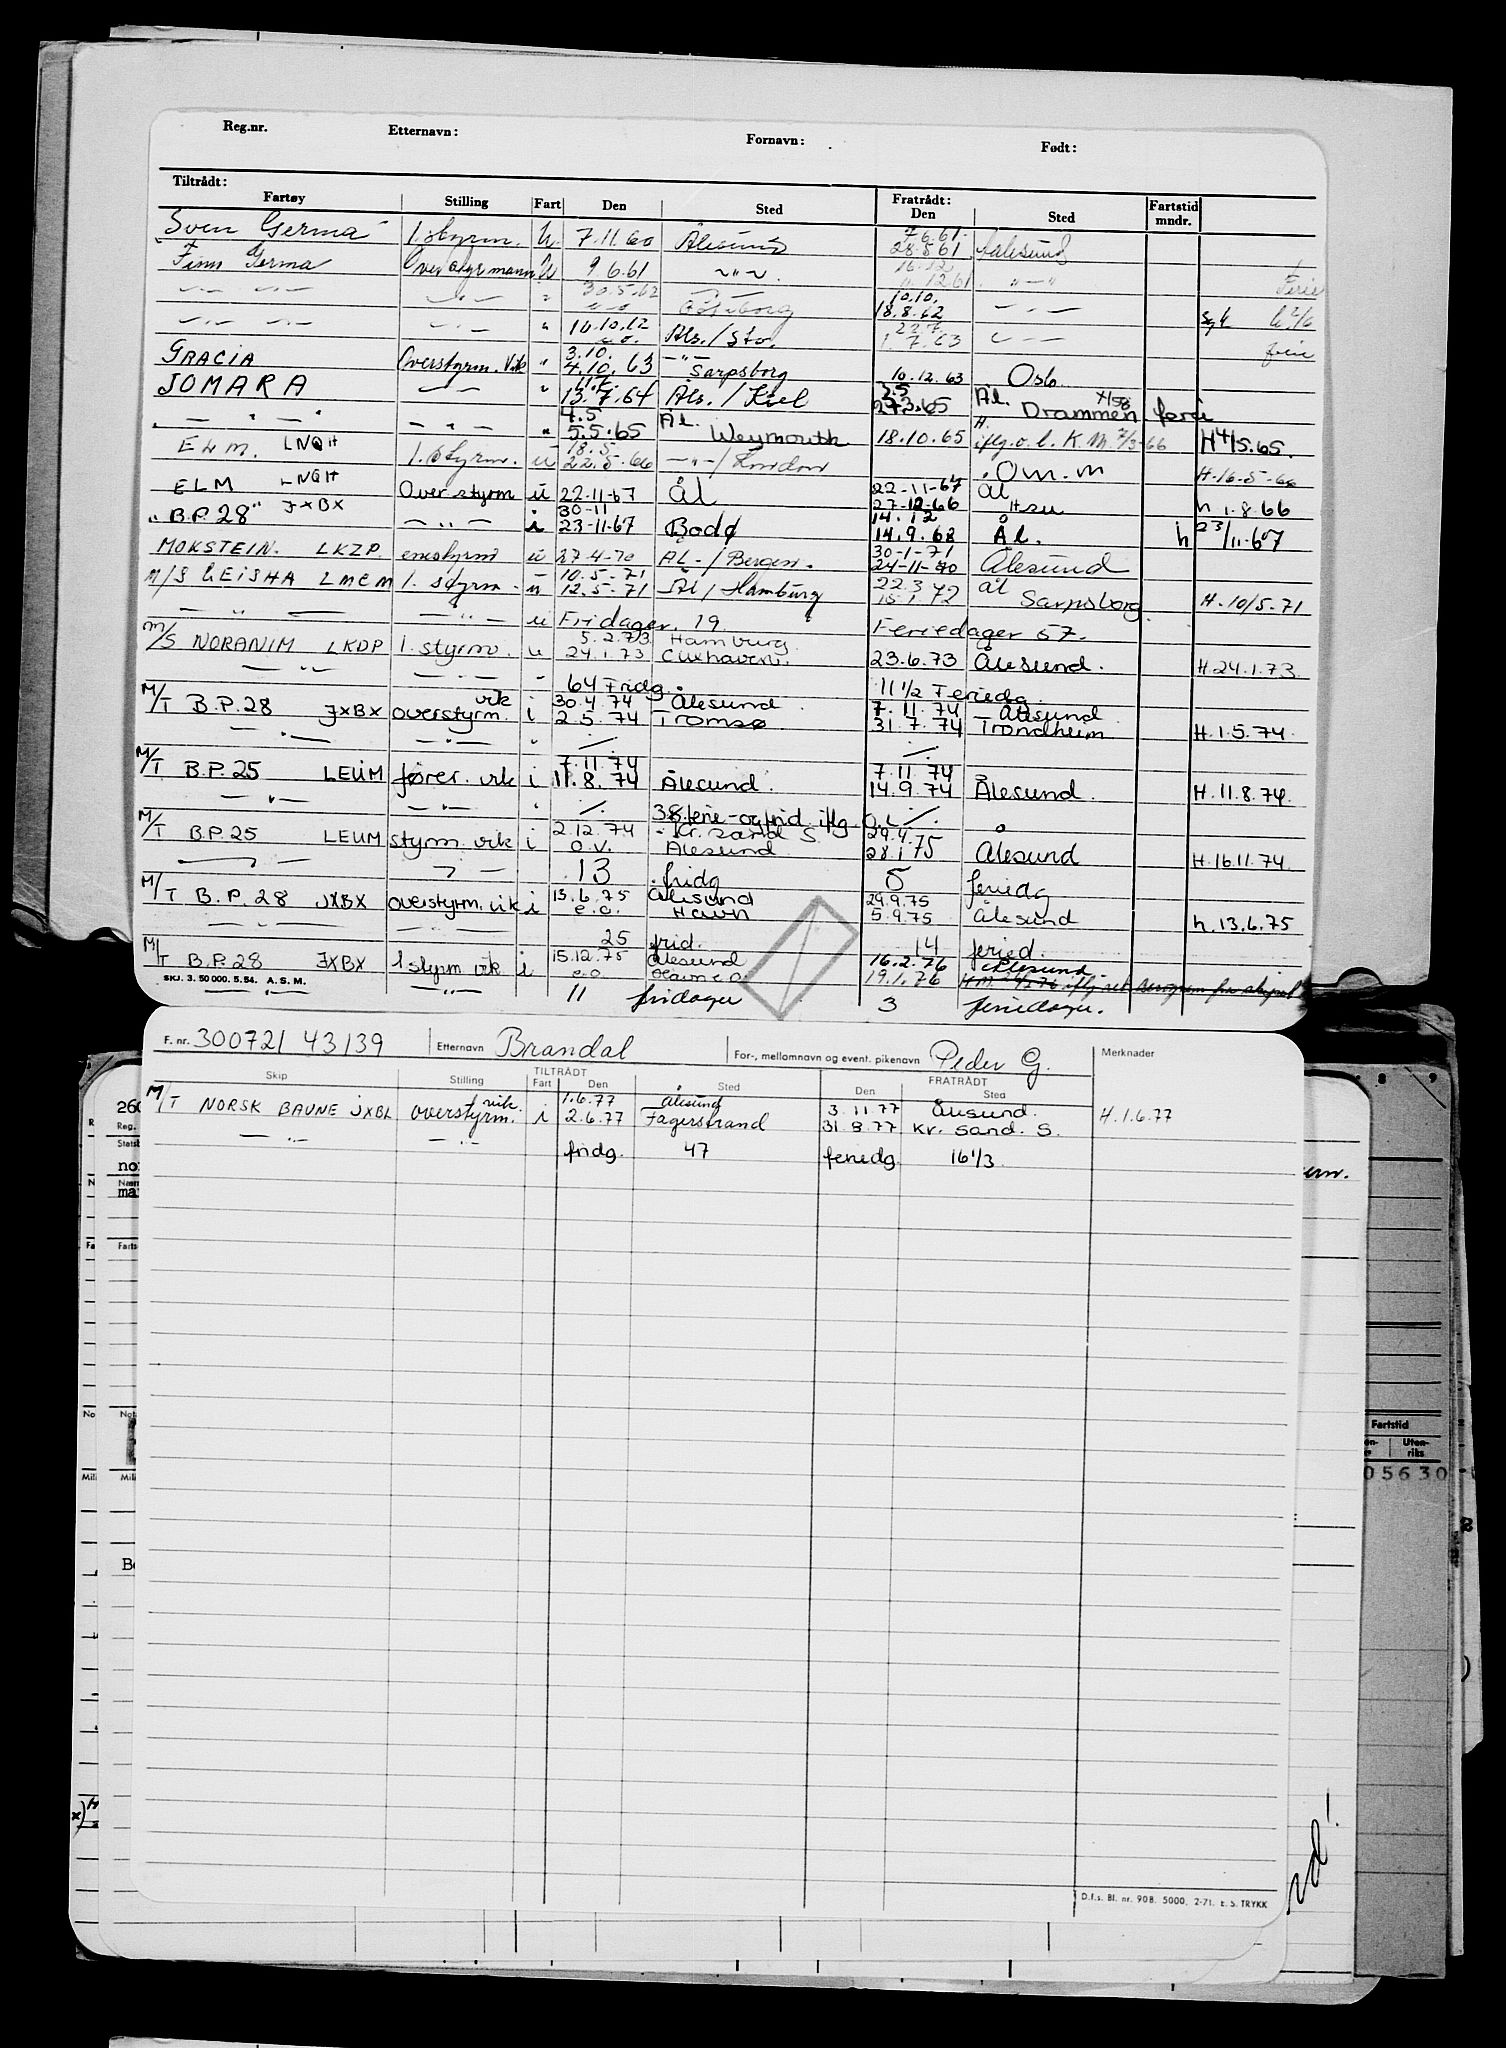 Reg.nr. Etternavn: Fornavn: Født:
Tiltrådt: Fratrådt: Fartstid
Fartøy Stilling Fart Den Sted Den Sted mndr.
7.6.61.
Sven Germa 1. styrm. U. 7.11.60 Ålesund 28.5.61 Aalesund
16.12
Finn Germa Overstyrmann U 9.6.61 ~"~ 12.61 "—" Ferie
30.5.62 10.10.
—"— —"— —"— " e.o. Göteborg 18.8.62 —"—
22.7.
—"— —"— —"— " 10.10.62 Åls./Sto. 1.7.63 —"— ferie
3.10. —"—
GRACIA Overstyrm. Vik " 4.10.63 Sarpsborg 10.12.63 Osb.
11.7. 3.5 Ål.
JOMARA —"— " 13.7.64 Åls./Kiel 27.3.65 Drammen ferie
4.5 Ål. H.
— " — " — " — " 5.5.65 Weymouth 18.10.65 iflg. o. l. K.M. 7/3-66 H 4/5.65.
18.5
ELM. LNQH 1. Styrm. u 22.5.66 —"—/London Om.m H.16-5-66
22-11-67 Ål
ELM LNQH Overstyrm u 22-11-67 Ål 27-12-66 Hsu h 1.8.66
30-11 14.12
"B.P. 28" JXBX —"— i 23-11-67 Bodø 14.9.68 Ål. h 23/11-67
30-1-71
MOKSTEIN. LKZP. enestyrm u 27-4-70 ÅL-/Bergen. 24-11-70 Ålesund
10.5-71 22.3 ål
M/S GEISHA LMCM 1. styrm. u 12.5-71 Ål/Hamburg 15.1.72 Sarpsborg H.10/5-71
— " — —"— u Fridager. 19. Feriedager 57.
5.2.73 Hamburg
M/S NORANIM LKDP 1. styrm. u 24.1.73 Cuxhaven. 23.6.73 Ålesund. H.24.1.73.
— " — — " — " 64 Fridg. 11 1/2 Feriedg.
vik 30.4.74 Ålesund 7.11.74 Ålesund
M/T B.P.28 JXBX overstyrm. i 2.5.74 Tromsø 31.7.74 Trondheim H.1.5.74.
— " — —"— " ·/. ·/.
7.11.74 7.11.74
M/T B.P.25 LEUM fører. vik i 11.8.74 Ålesund. 14.9.74 Ålesund. H.11.8.74.
— " — —"— " ·/. 38 ferie-og frid. iflg. o.l ·/.
2.12.74 Kr. sand S 29.4.
M/T B.P.25 LEUM styrm. vik i o.v. Ålesund 28.1.75 Ålesund H.16.11.74.
— " — — " — 13 fridg 5 feriedg
13.6.75 Ålesund 29.9.75
M/T B.P.28 JXBX overstyrm. vik i e.o. Havn 5.9.75 Ålesund h.13.6.75
— " — — " — 25 frid. 14 feried.
15.12.75 Ålesund 16.2.76 Ålesund
M/T B.P.28 JXBX 1 styrm. vik i e.o. 19.1.76
SKJ. 3. 50 000. 5.54. A.S.M.
— " — —"— 11 fridager 3 feriedager.
F. nr. 300721 43139 Etternavn Brandal For-, mellomnavn og event. pikenavn Peder G. Merknader
TILTRÅDT FRATRÅDT
Skip Stilling Fart Den Sted Den Sted
vik. 1.6.77 Ålesund 3.11.77 Ålesund.
M/T NORSK BAUNE JXBL overstyrm. i 2.6.77 Fagerstrand 31.8.77 Kr. sand. S. H.1.6.77
— " — — " — fridg. 47 feriedg. 16 1/3
D.f.s. Bl. nr. 908. 5000, 2-71. E. S. TRYKK
8 9
Fartstid
Uten-
riks
05630